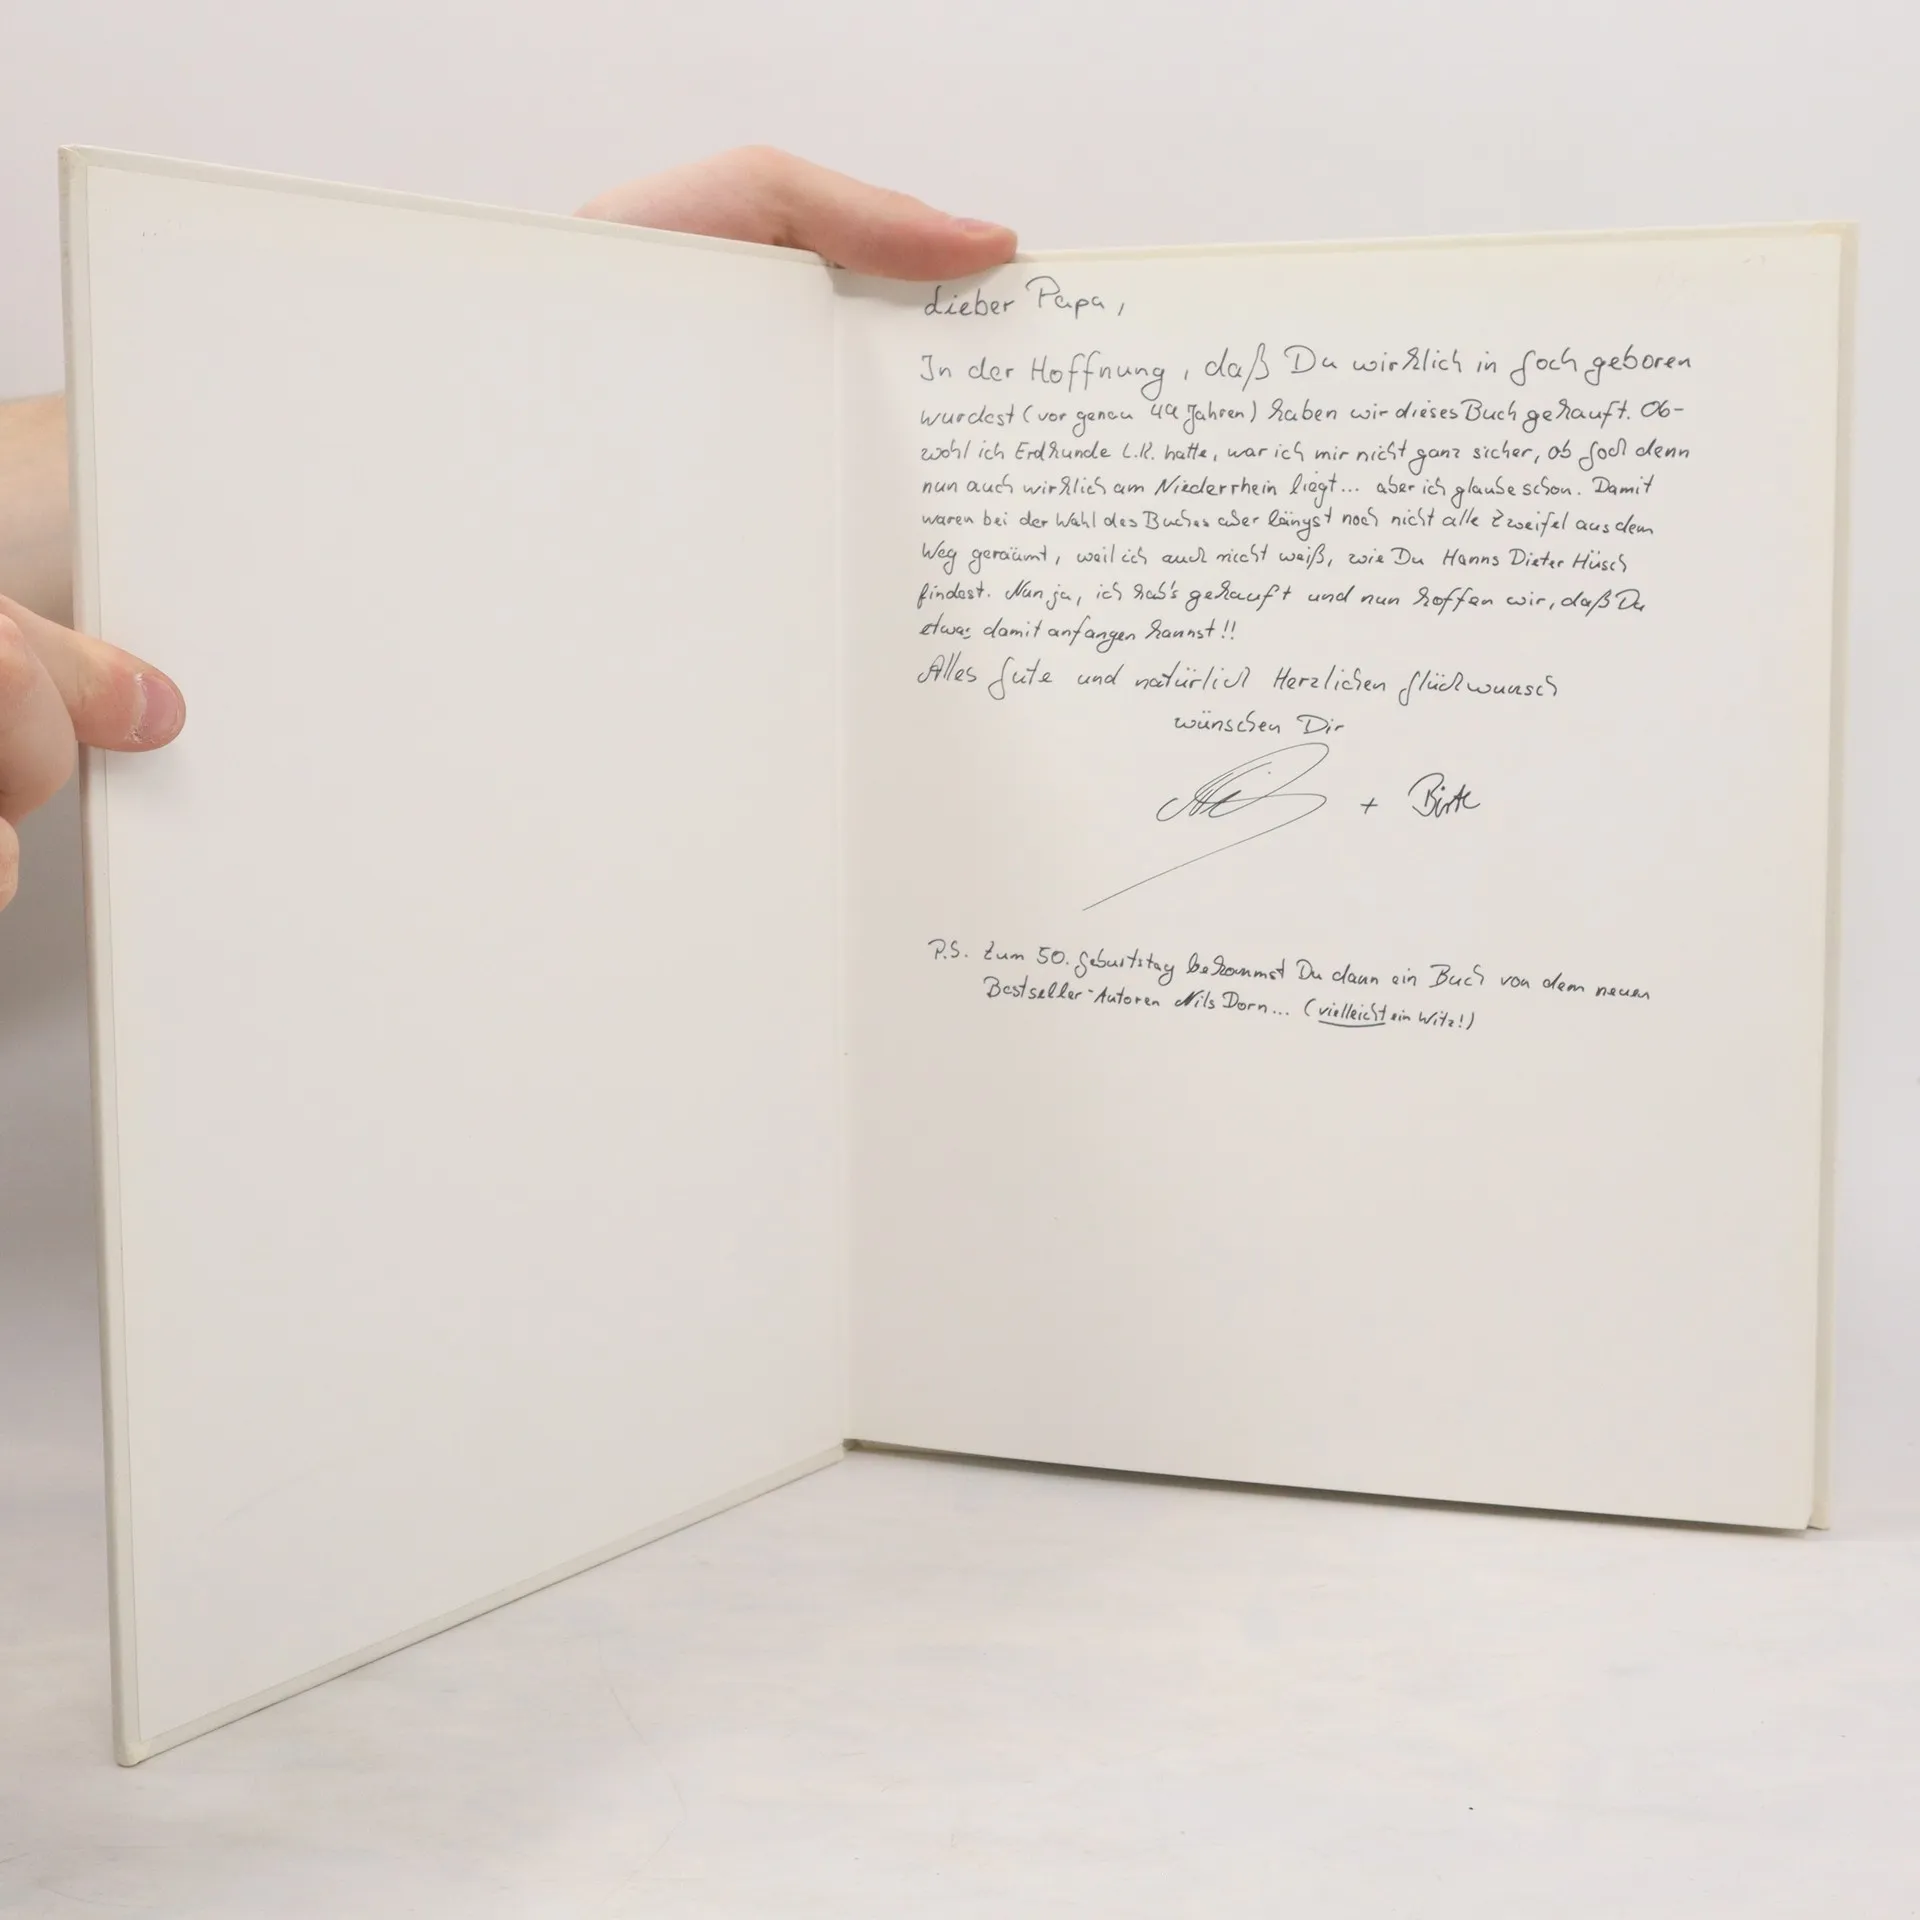 Lieber Papa,
In der Hoffnung, daß Du wirklich in Goch geboren
wurdest (vor genau 49 Jahren) haben wir dieses Buch gekauft. Ob-
wohl ich Erdkunde L.K. hatte, war ich mir nicht ganz sicher, ob Goch denn
nun auch wirklich am Niederrhein liegt... aber ich glaube schon. Damit
waren bei der Wahl des Buches aber längst noch nicht alle Zweifel aus dem
Weg geräumt, weil ich auch nicht weiß, wie Du Hanns Dieter Hüsch
findest. Nun ja, ich hab's gekauft und nun hoffen wir, daß Du
etwas damit anfangen kannst!!
Alles Gute und natürlich Herzlichen Glückwunsch
wünschen Dir
+ Birte
P.S. Zum 50. Geburtstag bekommst Du dann ein Buch von dem neuen
Bestseller-Autoren Nils Dorn... (vielleicht ein Witz!)